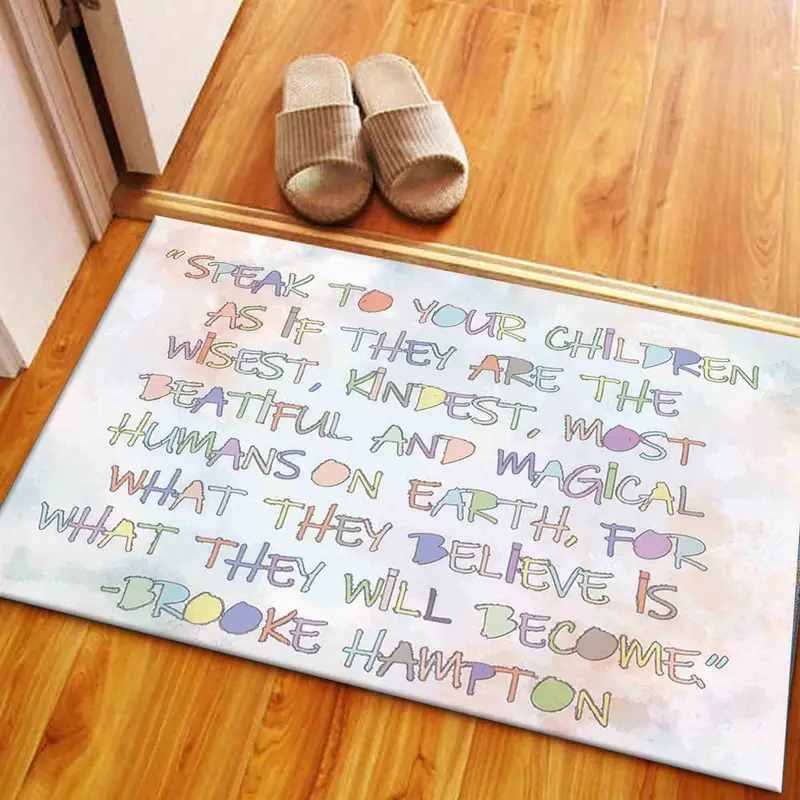 "SPEAK TO YOUR CHILDREN
AS IF THEY ARE THE
WISEST, KINDEST, MOST
BEATIFUL AND MAGICAL
HUMANS ON EARTH, FOR
WHAT THEY BELIEVE IS
WHAT THEY WILL BECOME."
-BROOKE HAMPTON